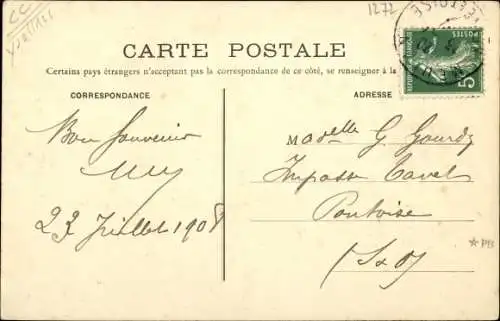 CC
1272
CARTE POSTALE
Certains pays étrangers n'acceptant pas la correspondance de ce côté, se renseigner à la
CORRESPONDANCE
ADRESSE
POSTES
5
Bon Souvenir
23 Juillet 1908
Madelle G. Gourdy
Impasse Cavet
Pontoise
(S & O)